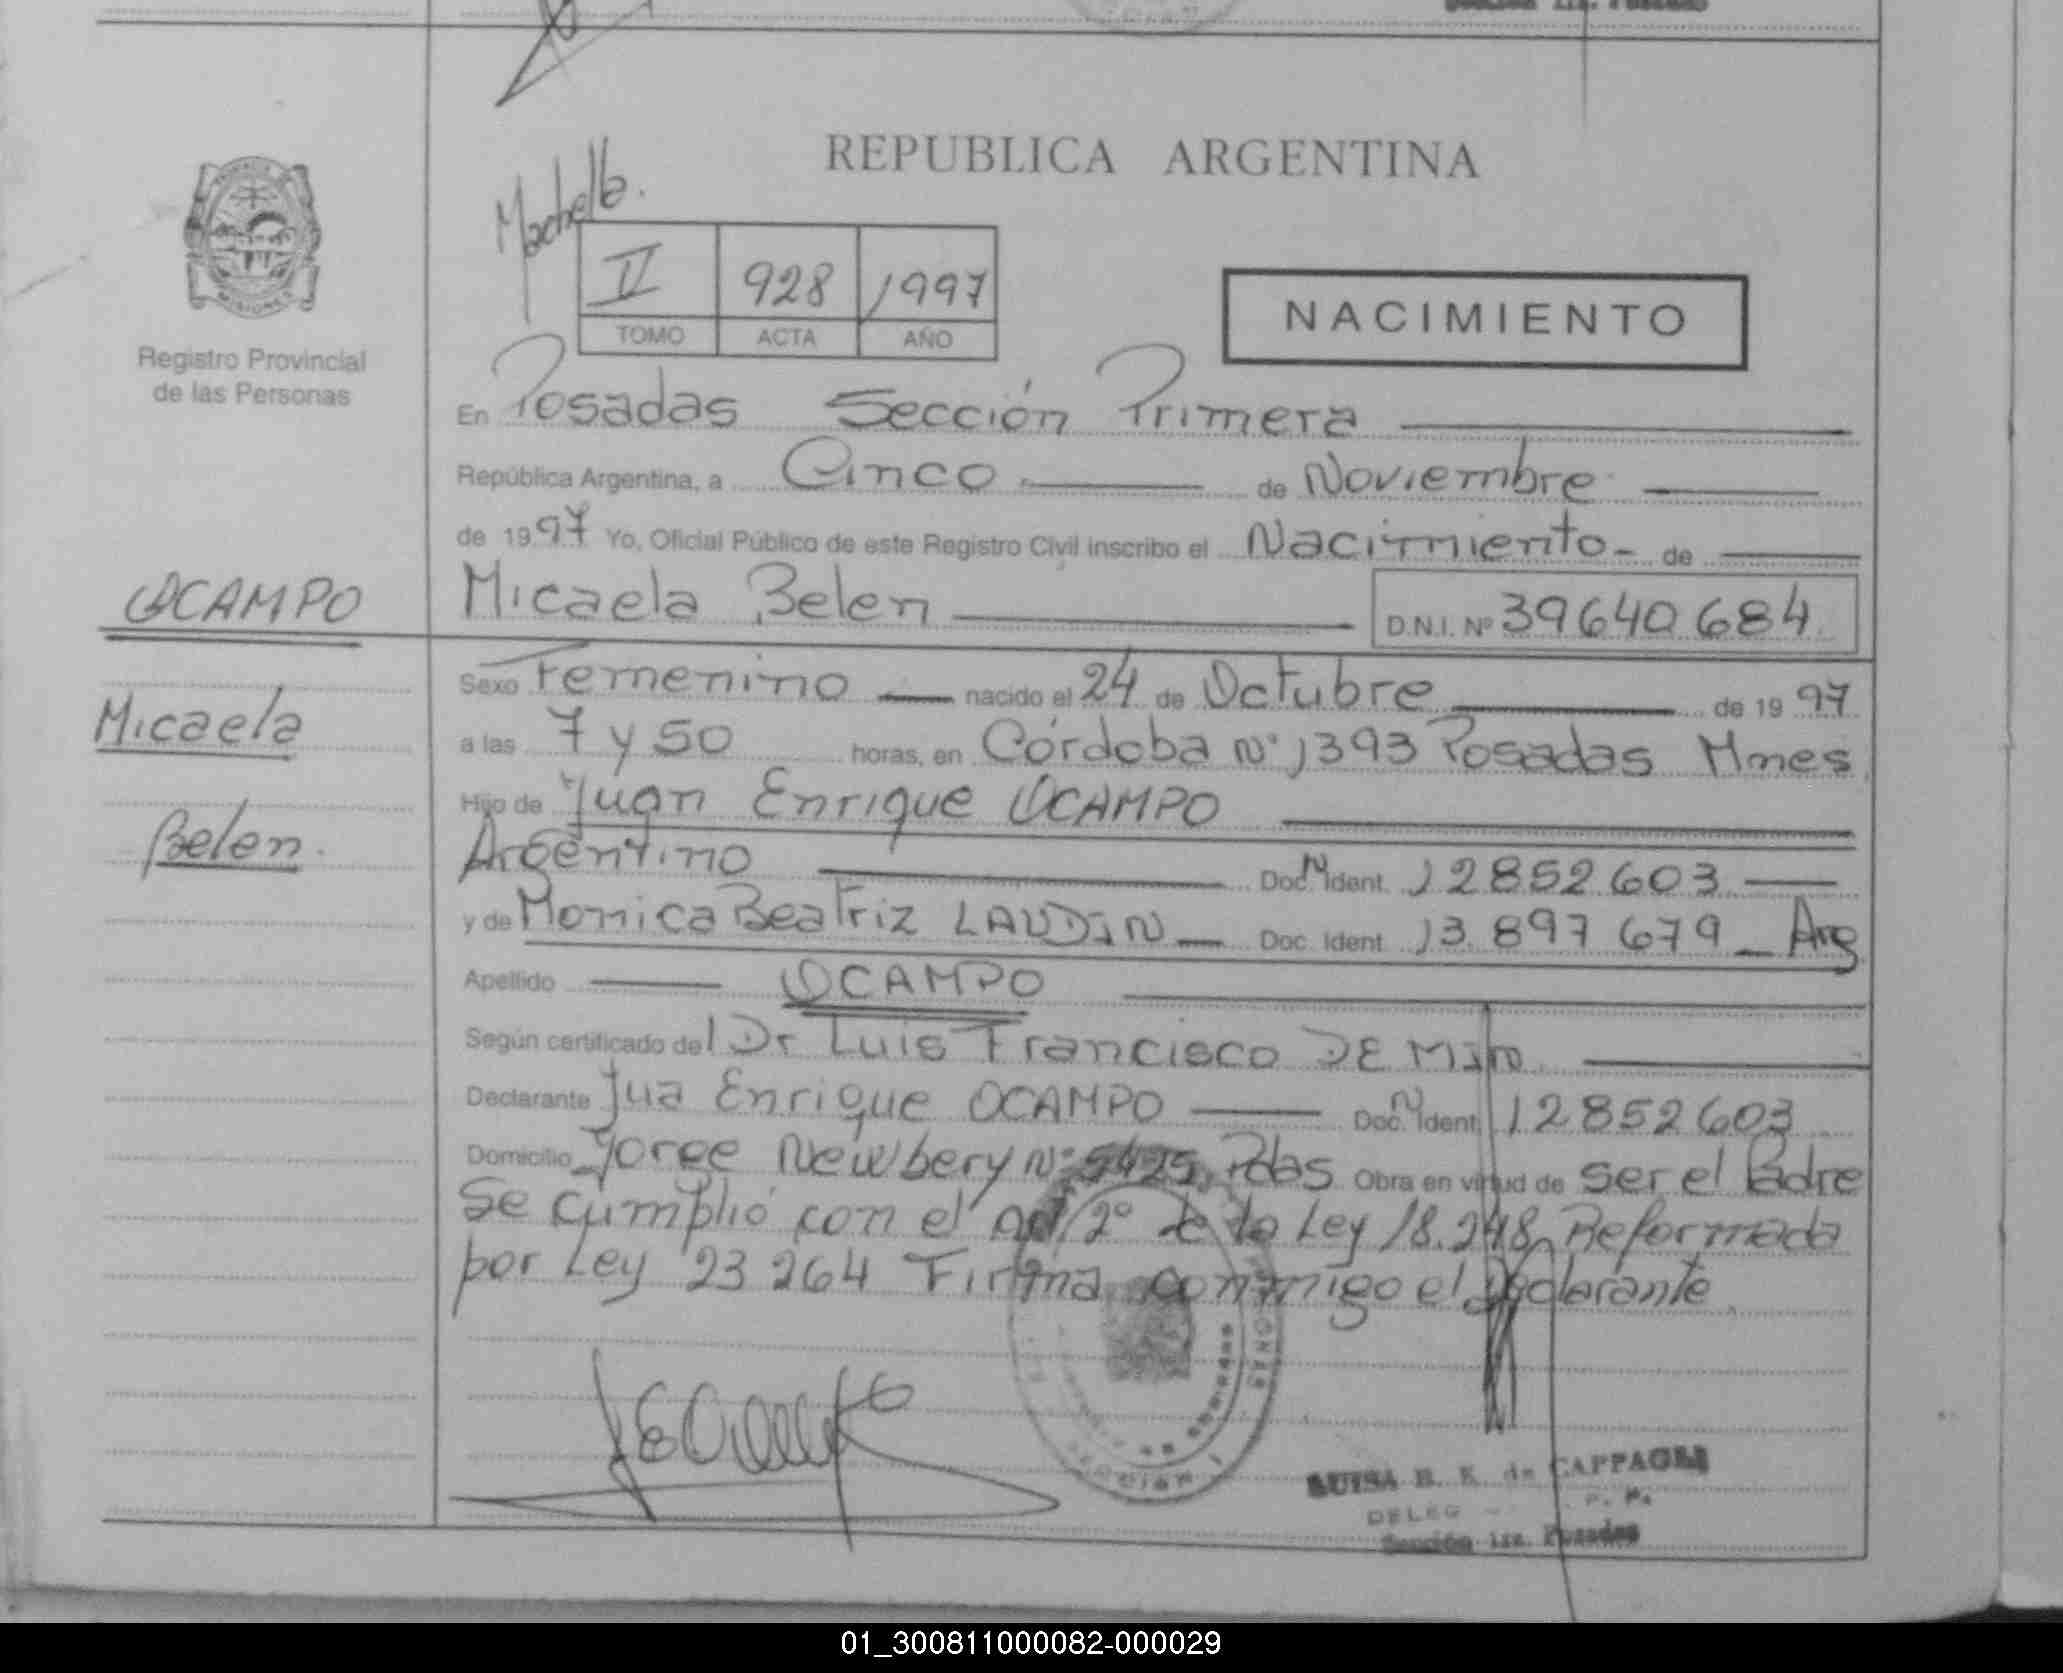 REPUBLICA ARGENTINA
II 928 1997
TOMO ACTA AÑO
NACIMIENTO
MISIONES
Registro Provincial
de las Personas
En Posadas Sección Primera
República Argentina, a Cinco de Noviembre
de 1997 Yo, Oficial Público de este Registro Civil inscribo el Nacimiento de
OCAMPO
Micaela Belen D.N.I. Nº 39640684
Micaela
Belen
Sexo Femenino nacido el 24 de Octubre de 1997
a las 7 y 50 horas, en Córdoba Nº 1393 Posadas Mnes
Hijo de Juan Enrique OCAMPO
Argentino Doc. N Ident. 12852603
y de Monica Beatriz LAUDIN Doc. Ident. 13.897 679 Arg
Apellido OCAMPO
Según certificado del Dr Luis Francisco DE MIN
Declarante Jua Enrique OCAMPO Doc. N Ident. 12852603
Domicilio Jorge Newbery Nº 5425 Pdas Obra en virtud de ser el Padre
Se cumplió con el Art 2º de la Ley 18.248 Reformada
por Ley 23 264 Firma conmigo el Declarante
LUISA de CAPPAGLI
DELEG
Sección 1ra. Posadas
01_300811000082-000029